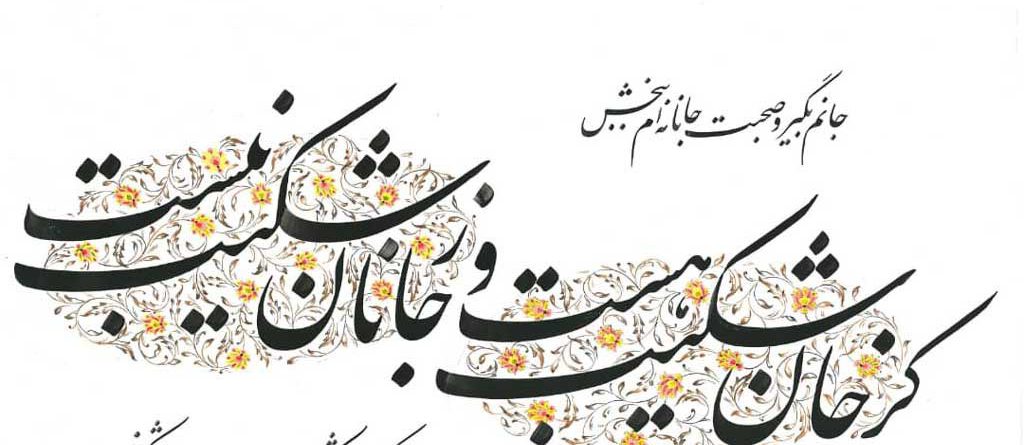 جانم بگیر و صحبت جانانه‌ام ببخش
کز جان شکیب هست
و ز جانان شکیب نیست